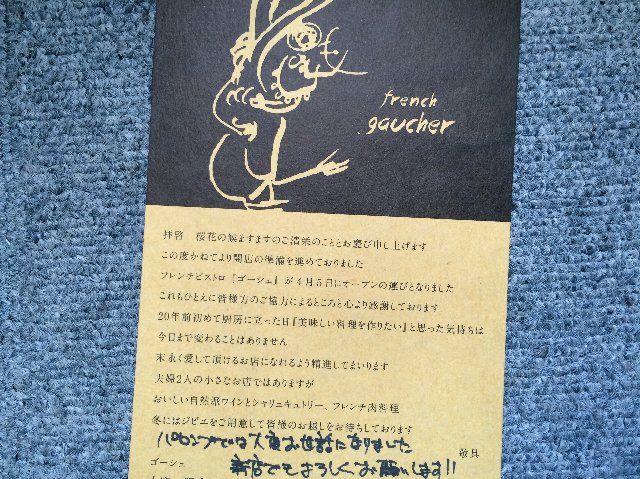 french
gaucher
拝啓　桜花の候ますますのご清栄のこととお慶び申し上げます
この度かねてより開店の準備を進めておりました
フレンチビストロ『ゴーシェ』が4月5日にオープンの運びとなりました
これもひとえに皆様方のご協力によるところと心より感謝しております
20年前初めて厨房に立った日『美味しい料理を作りたい』と思った気持ちは
今日まで変わることはありません
末永く愛して頂けるお店になれるよう精進してまいります
夫婦2人の小さなお店ではありますが
おいしい自然派ワインとシャリュキュトリー、フレンチ肉料理
冬にはジビエをご用意して皆様のお越しをお待ちしております
パロンブでは大変お世話になりました
敬具
ゴーシェ
新店でもよろしくお願いします!!